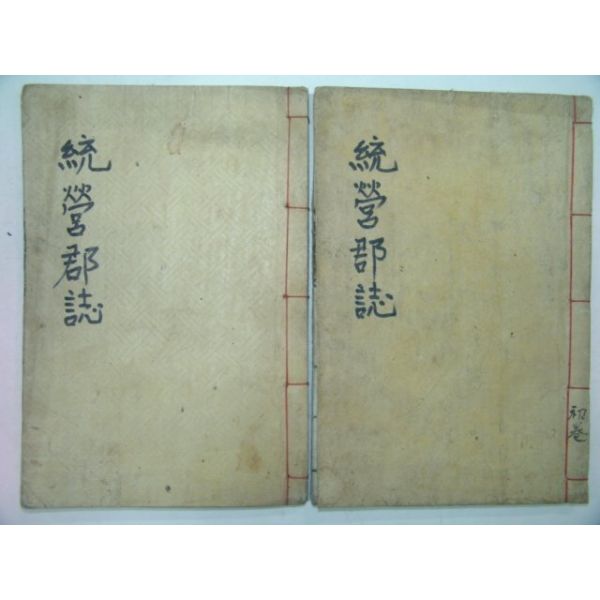 統營郡誌
統營郡誌
初巻